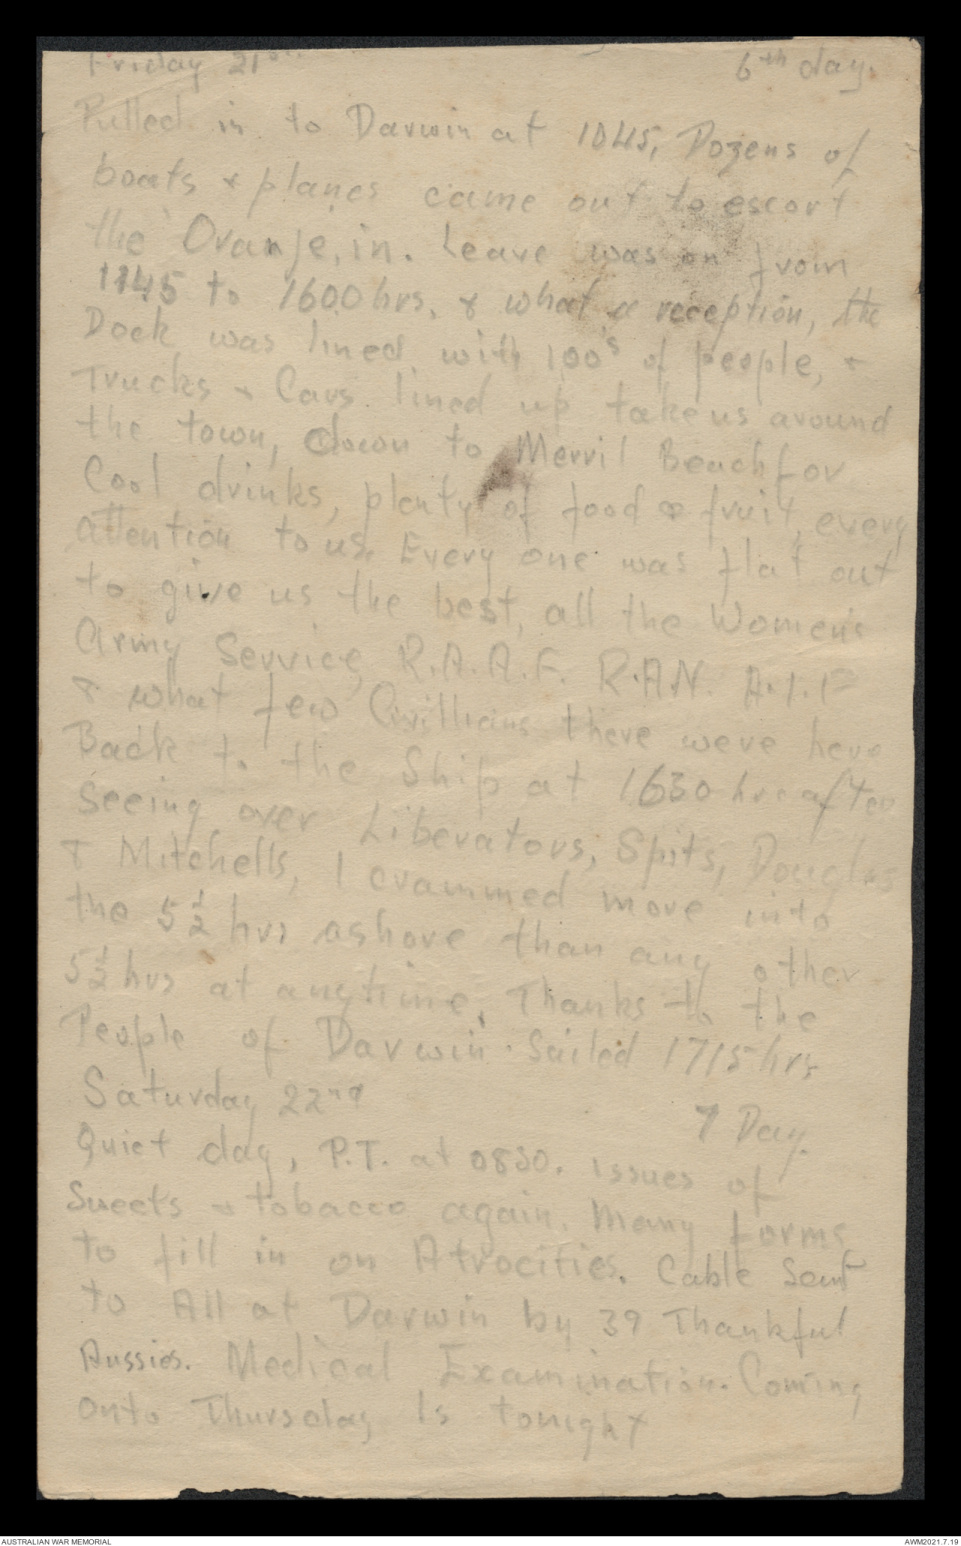 Friday 21st 6th day.
Pulled in to Darwin at 1045, Dozens of
boats & planes came out to escort
the Oranje, in. Leave was on from
1145 to 1600 hrs, & what a reception, the
Dock was lined with 100's of people, &
Trucks & Cars lined up take us around
the town, down to Merril Beach for
Cool drinks, plenty of food & fruit, every
attention to us. Every one was flat out
to give us the best, all the Women's
Army Service, R.A.A.F. R.A.N. A.I.F
& what few Civillians there were here
Back to the Ship at 1630 hrs after
seeing over Liberators, Spits, Douglas
& Mitchells, I crammed more into
the 5½ hrs ashore than any other
5½ hrs at anytime, Thanks to the
People of Darwin. Sailed 1715 hrs
Saturday 22nd 7 Day.
Quiet day, P.T. at 0830. Issues of
Sweets & tobacco again. Many forms
to fill in on Atrocities. Cable Sent
to All at Darwin by 39 Thankful
Aussies. Medical Examination. Coming
onto Thursday Is tonight
AUSTRALIAN WAR MEMORIAL AWM2021.7.19